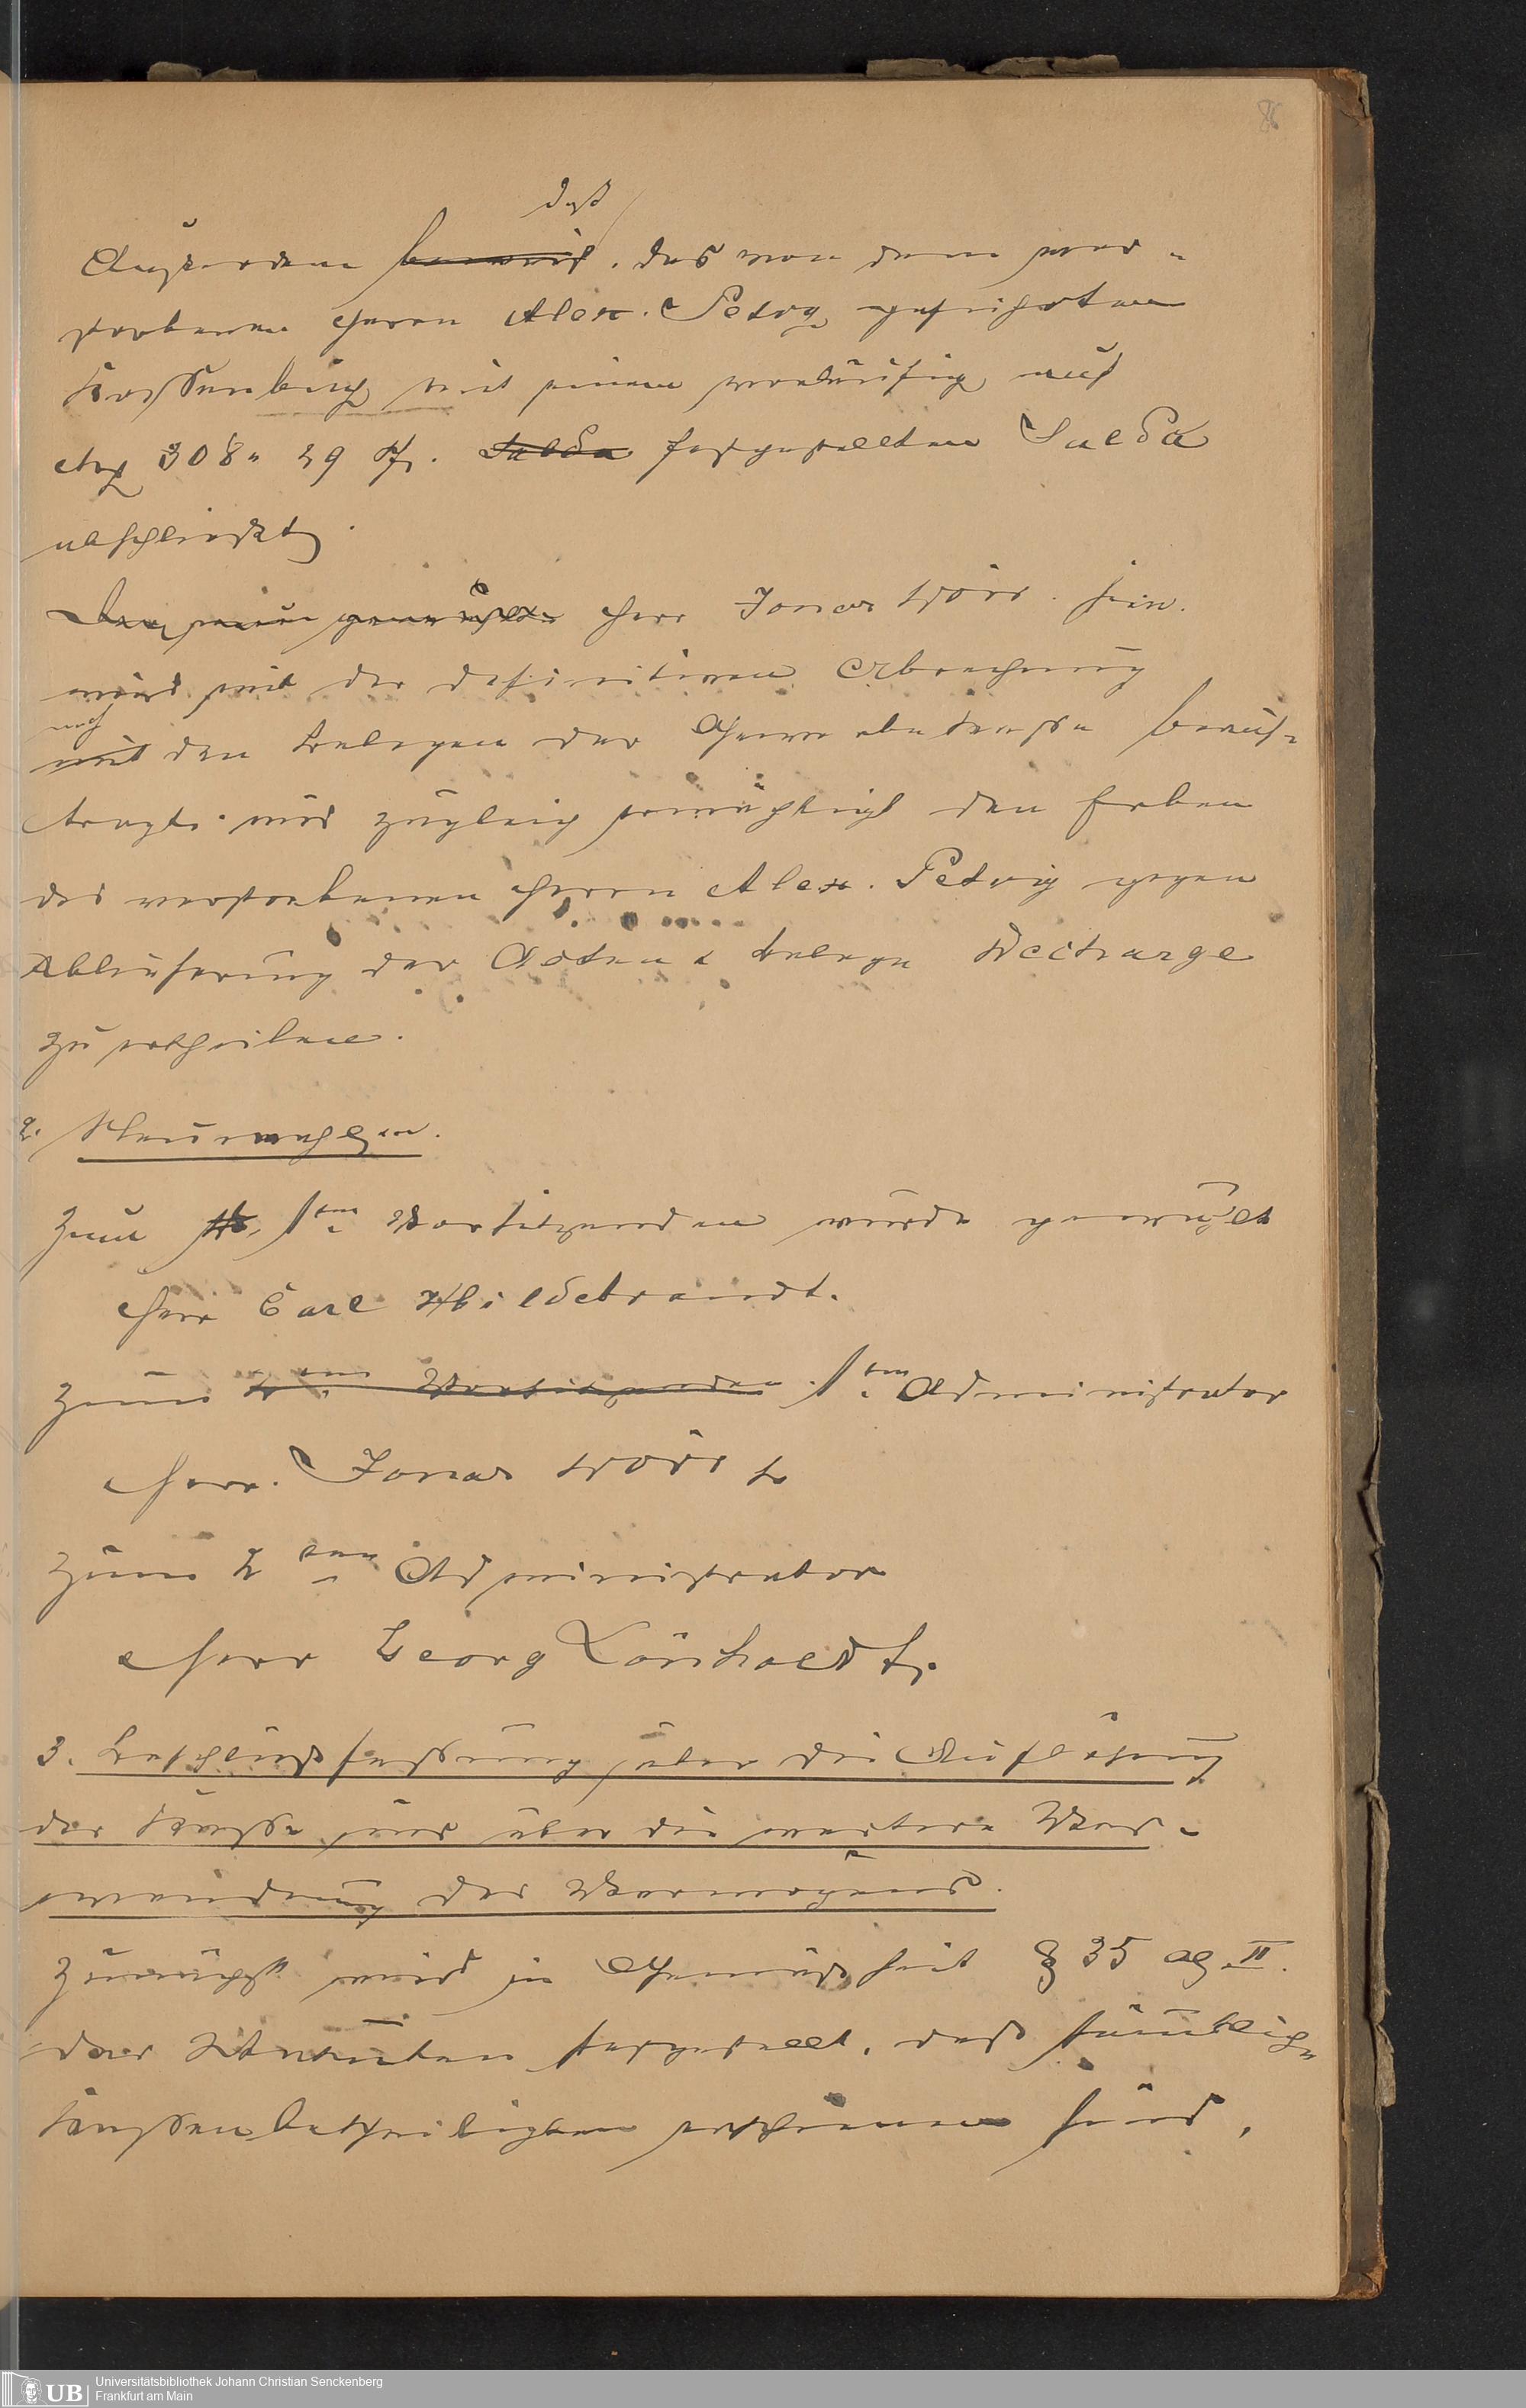 86
daß
Außerdem das von dem ver-
storbenen Herrn Alex. Petry geführten
Kassenbuch mit einem vorläufig auf
M 308.. 29 Pf. Saldo festgestellten Saldo
abschließt.
Herr Jonas Wörr. hier.
wird mit der definitiven Abrechnung
nach
mit den Belegen der Gewerbekasse beauf-
tragt. und zugleich ermächtigt den Erben
des verstorbenen Herrn Alex. Petry gegen
Ablieferung der Acten & Belege Decharge
zu ertheilen.
2. Neuwahlen.
Zum 1ten Vorsitzenden wurde gewählt
Herr Carl Hildebrandt.
Zum 2ten Vorsitzenden 1ten Administrator
Herr. Jonas Wörr
Zum 2ten Administrator
Herr Georg Lönholdt.
3. Beschlußfassung über die Auflösung
der Kasse und über die weitere Ver-
wendung des Vermögens.
Zunächst wird in Gemäßheit § 35 II.
der Statuten festgestellt, daß sämtliche
Kassenbetheiligten erschienen sind,
UB Universitätsbibliothek Johann Christian Senckenberg
Frankfurt am Main